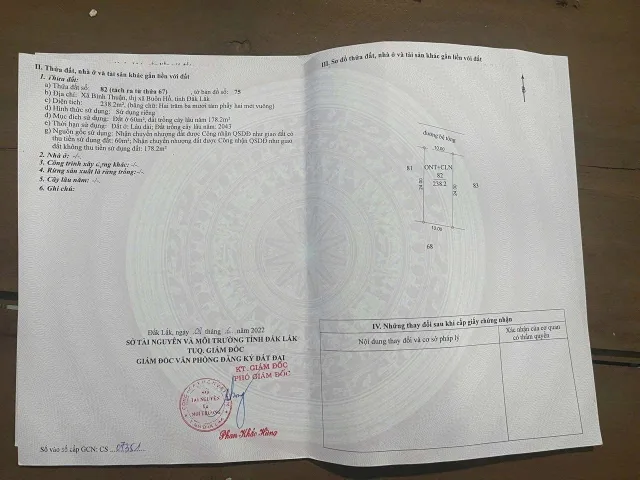 II. Thửa đất, nhà ở và tài sản khác gắn liền với đất
1. Thửa đất:
a) Thửa đất số: 82 (tách ra từ thửa 67) , tờ bản đồ số: 75
b) Địa chỉ: Xã Bình Thuận, thị xã Buôn Hồ, tỉnh Đắk Lắk
c) Diện tích: 238.2m², (bằng chữ: Hai trăm ba mươi tám phẩy hai mét vuông)
d) Hình thức sử dụng: Sử dụng riêng
đ) Mục đích sử dụng: Đất ở 60m², đất trồng cây lâu năm 178.2m²
e) Thời hạn sử dụng: Đất ở: Lâu dài; Đất trồng cây lâu năm: 2043
g) Nguồn gốc sử dụng: Nhận chuyển nhượng đất được Công nhận QSDĐ như giao đất có
thu tiền sử dụng đất: 60m²; Nhận chuyển nhượng đất được Công nhận QSDĐ như giao
đất không thu tiền sử dụng đất: 178.2m²
2. Nhà ở: -/-
3. Công trình xây dựng khác: -/-
4. Rừng sản xuất là rừng trồng: -/-
5. Cây lâu năm: -/-
6. Ghi chú:
Đắk Lắk, ngày tháng năm 2022
SỞ TÀI NGUYÊN VÀ MÔI TRƯỜNG TỈNH ĐẮK LẮK
TUQ. GIÁM ĐỐC
GIÁM ĐỐC VĂN PHÒNG ĐĂNG KÝ ĐẤT ĐAI
KT. GIÁM ĐỐC
PHÓ GIÁM ĐỐC
TÀI NGUYÊN
VÀ
MÔI TRƯỜNG
Phan Khắc Hùng
Số vào sổ cấp GCN: CS
III. Sơ đồ thửa đất, nhà ở và tài sản khác gắn liền với đất
đường bê tông
10.00
81
ONT+CLN
82
238.2
83
10.00
68
IV. Những thay đổi sau khi cấp giấy chứng nhận
Nội dung thay đổi và cơ sở pháp lý
Xác nhận của cơ quan
có thẩm quyền